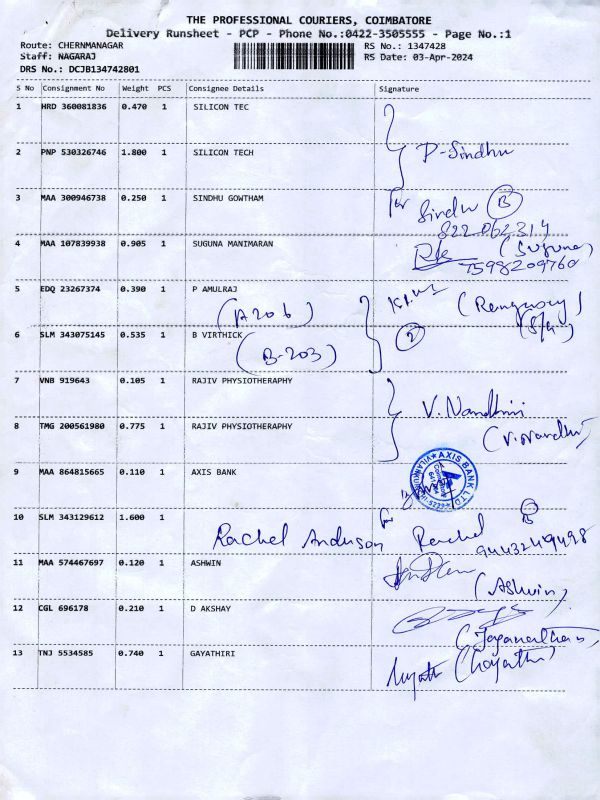 THE PROFESSIONAL COURIERS, COIMBATORE
Delivery Runsheet - PCP - Phone No.:0422-3505555 - Page No.:1
Route: CHERNMANAGAR RS No.: 1347428
Staff: NAGARAJ RS Date: 03-Apr-2024
DRS No.: DCJB134742801
S No Consignment No Weight PCS Consignee Details Signature
1 HRD 360081836 0.470 1 SILICON TEC
2 PNP 530326746 1.800 1 SILICON TECH P-Sindhu
3 MAA 300946738 0.250 1 SINDHU GOWTHAM for Sindhu B
822 062314
4 MAA 107839938 0.905 1 SUGUNA MANIMARAN (Suguna)
7598209760
5 EDQ 23267374 0.390 1 P AMULRAJ
(A206)
6 SLM 343075145 0.535 1 B VIRTHICK 2
(B-203)
7 VNB 919643 0.105 1 RAJIV PHYSIOTHERAPHY V. Nandhini
8 TMG 200561980 0.775 1 RAJIV PHYSIOTHERAPHY
9 MAA 864815665 0.110 1 AXIS BANK AXIS BANK LTD
10 SLM 343129612 1.600 1 for B
Rachel Anderson Rachel 9443249498
11 MAA 574467697 0.120 1 ASHWIN
(Ashwin)
12 CGL 696178 0.210 1 D AKSHAY
13 TNJ 5534585 0.740 1 GAYATHIRI (Gayathri)